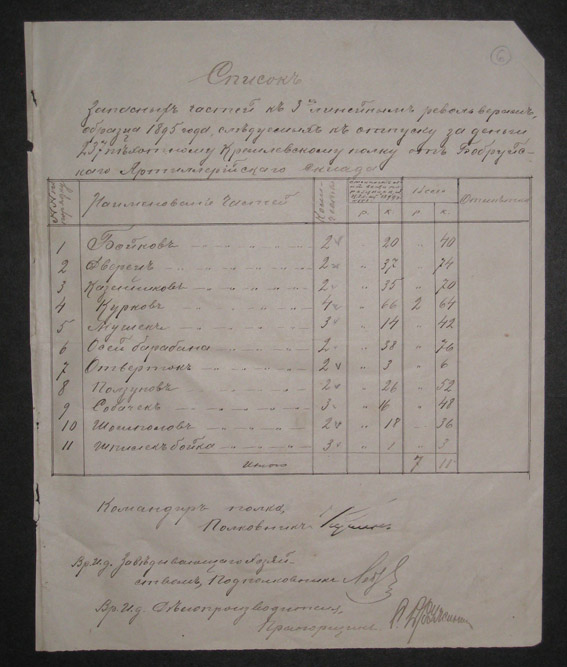 6
Списокъ
Запасныхъ частей къ 3х линейнымъ револьверамъ,
образца 1895 года, слѣдуемыхъ къ отпуску за деньги
пѣхотному полку отъ Бобруйс-
каго Артиллерійскаго Склада
№№ по порядку Наименованіе частей Р. К. Р. К.
1 Бойковъ 2 " 20 " 40
2 Дверецъ 2 " 37 " 74
3 2 " 35 " 70
4 Курковъ 4 " 66 2 64
5 Мушекъ 3 " 14 " 42
6 Осей барабана 2 " 38 " 76
7 Отвертокъ 2 " 3 " 6
8 Ползуновъ 2 " 26 " 52
9 Собачекъ 3 " 16 " 48
10 Шомполовъ 2 " 18 " 36
11 Шпилекъ бойка 3 " 1 " 3
Итого 7 11
Командиръ полка,
Полковникъ
Вр. Ид. Завѣдывающаго хозяй-
ствомъ, Подполковникъ
Вр. Ид. Дѣлопроизводителя,
Прапорщикъ